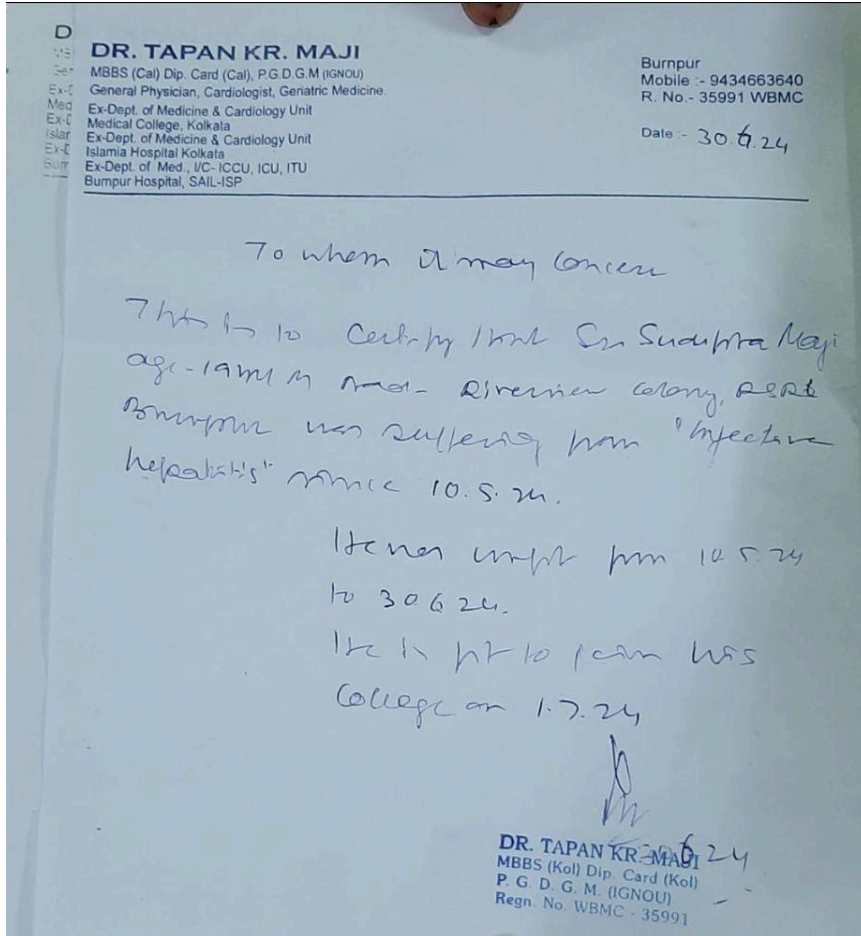 DR. TAPAN KR. MAJI
MBBS (Cal) Dip. Card (Cal), P.G.D.G.M (IGNOU)
General Physician, Cardiologist, Geriatric Medicine.
Ex-Dept. of Medicine & Cardiology Unit
Medical College, Kolkata
Ex-Dept. of Medicine & Cardiology Unit
Islamia Hospital Kolkata
Ex-Dept. of Med., I/C- ICCU, ICU, ITU
Burnpur Hospital, SAIL-ISP
Burnpur
Mobile :- 9434663640
R. No.- 35991 WBMC
Date :- 30.6.24
To whom it may concern
This is to Certify that Sri Sudipta Maji
age- 19 M Riverview colony,
Burnpur was suffering from "Infective
hepatitis" since 10.5.24.
He was unfit from 10.5.24
to 30.6.24.
He is fit to join his
College on 1.7.24
DR. TAPAN KR. MAJI
MBBS (Kol) Dip. Card (Kol)
P. G. D. G. M. (IGNOU)
Regn. No. WBMC - 35991